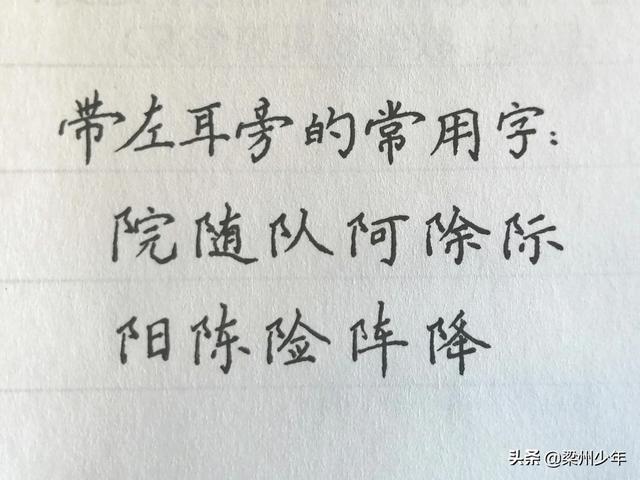 带左耳旁的常用字:
院随队阿除际
阳陈险阵降
头条 @梁州少年